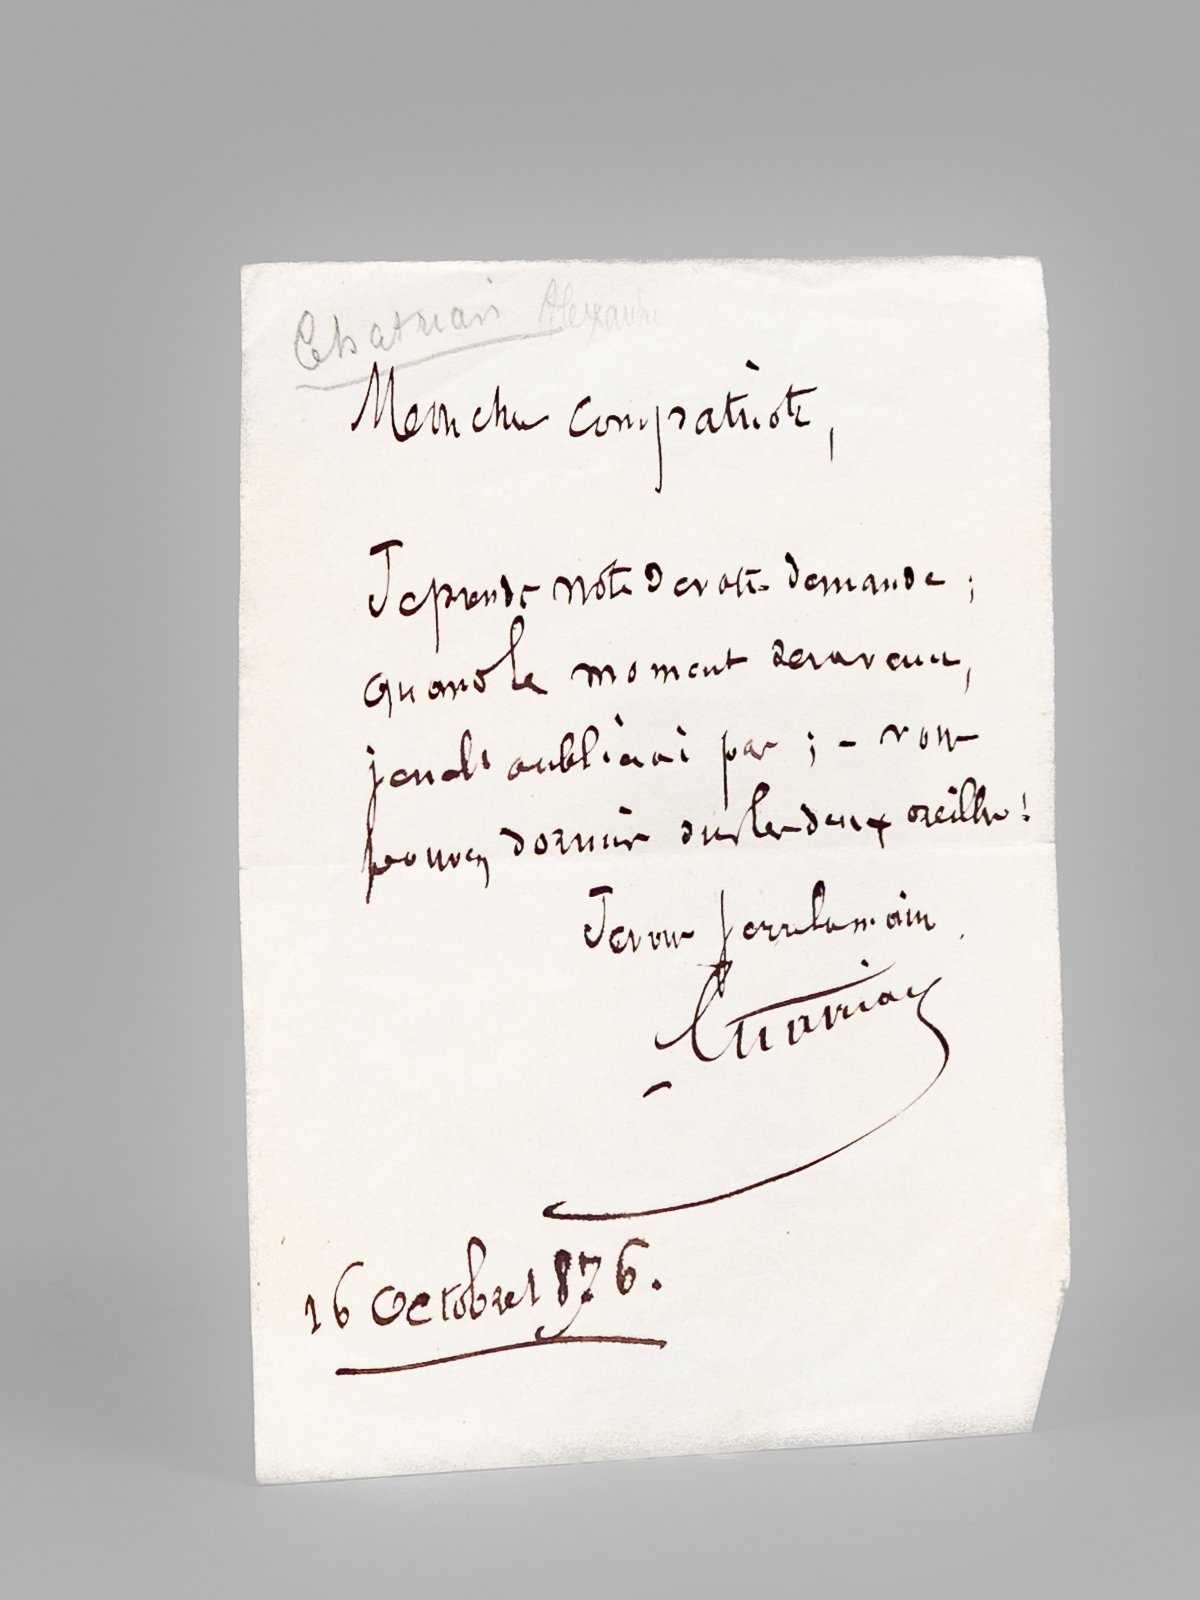 Chatrian Alexandre
Mon cher compatriote,
Je prends note de votre demande ;
quand le moment sera venu,
je ne l' oublierai pas ; - vous
pouvez dormir sur les deux oreilles !
Je vous serre la main
Chatrian
16 Octobre 1876.